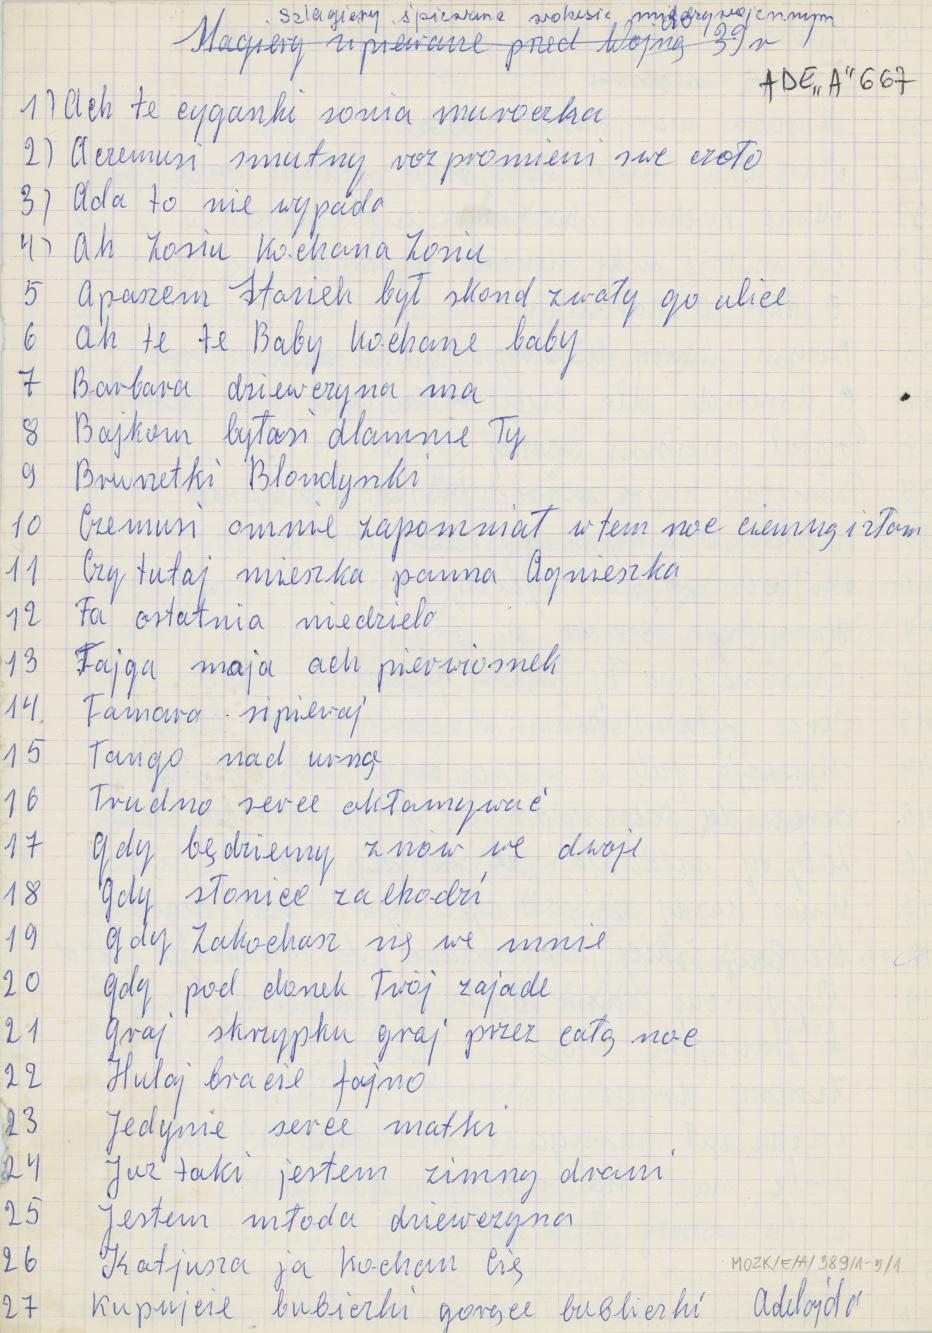 Szlagiery śpiewane w okesie międzywojennym
Szlagiery śpiewane przed Wojną 39 r
ADE „A" 667
1) Ach te cyganki sonia muroczka
2) Aczemusi smutny rozpromieni swe czoło
3) Ada to nie wypada
4) Ah Zosiu Kochana Zosiu
5 Apaszem Stasiek był skond zwały go ulice
6 Ah te te Baby Kochane baby
7 Barbara dziewczyna ma
8 Bajkom byłasi dlamnie Ty
9 Brunetki Blondynki
10 Czemusi omnie zapomniał w tem noc ciemną i złom
11 Czy tutaj mieszka panna Agnieszka
12 Ta ostatnia niedziela
13 Fajga maja ach pierwiosnek
14 Tamara sipiewaj
15 Tango nad urną
16 Trudno serce okłamywać
17 gdy będziemy znów we dwoje
18 gdy słonice zachodzi
19 gdy Zakochasz się we mnie
20 gdy pod donek Twój zajade
21 graj skrzypku graj przez całą noc
22 Hulaj bracie fajno
23 Jedynie serce matki
24 Juz taki jestem zimny drani
25 Jestem młoda dziewczyna
26 Katjusza ja Kochan Cię
MOZK/E/A/389/1-5/1
27 Kupujcie bubiczki gorące bubliczki Adelajda